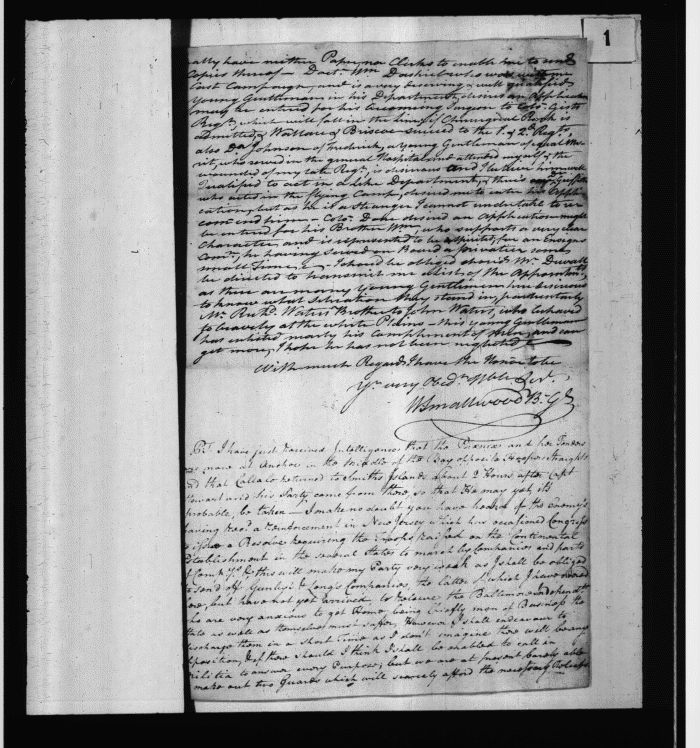 1
ally have neither Paper, nor Clerks to enable me to send
Copies thereof — Doctr. Wm Dashiel who was with me
last Campaign, and is a very deserving & well qualified
Young Gentleman in his Department, desires an Applica
may be entered for his becoming Surgeon to Colo. Gists
Regt. which will fall in the line, if Chirurgical Rank is
admitted, & Wallace & Briscoe succeed to the 1. & 2d. Regts.
also Dr. Johnson of Fredrick, a Young Gentleman of equal Me
rit, who served in the general Hospital and attended myself & the
wounded of my late Regt. is desirous and I believe him well
qualified to act in a like Department, & there's
who acted in the flying Camp, desired me to enter his Appli
cation, but as he is a Stranger I cannot undertake to re
commend him — Colo. desired an Application might
be entered for his Brother Wm. who supports a very clear
Character, and is represented to be a spirited, for an Ensigns
Comn. he having served on Board a privateer some
small time, — I should be obliged should Mr. Duvall
be directed to transmit me a list of the Appointmts.
as there are many Young Gentlemen here desirous
to know what Situation they stand in, particularly
Mr. Richd. Waters Brother to John Waters, who behaved
so bravely at the White Plains — this young Gentleman
has enlisted nearly his compliment of Men, and can
get more, I hope he has not been neglected —
With much Regard I have the Honor to be
Yr. very Obedt. Hble Servt.
W Smallwood B. G.
P.S. I have just received Intelligence that the Pioneer and her Tenders
are now at Anchor in the Middle of the Bay opposite Hooper's straights
and that Callalo returned to Smiths Islands about 2 Hours after Capt
Stewart and his Party came from there, so that He may yet, its
probable, be taken — I make no doubt you have heard of the Enemy's
having recd. a reinforcement in New Jersey which has occasioned Congress
to issue a Resolve requiring the Troops raised on the Continental
Establishment in the several States to march by Companies and parts
of Companys, this will make my Party very weak as I shall be obliged
to send off Gunby's & Long's Companies, the latter of which I have
here, but have not yet arrived, to relieve the Baltimore Independents
who are very anxious to get Home, being Chiefly men of Business the
State as well as themselves must suffer, However I shall endeavour to
discharge them in a short Time as I don't imagine there will be any
opposition, & if there should I think I shall be enabled to call in
Militia to answer every Purpose, but we are at present barely able
make out two Guards which will scarcely afford the necessary